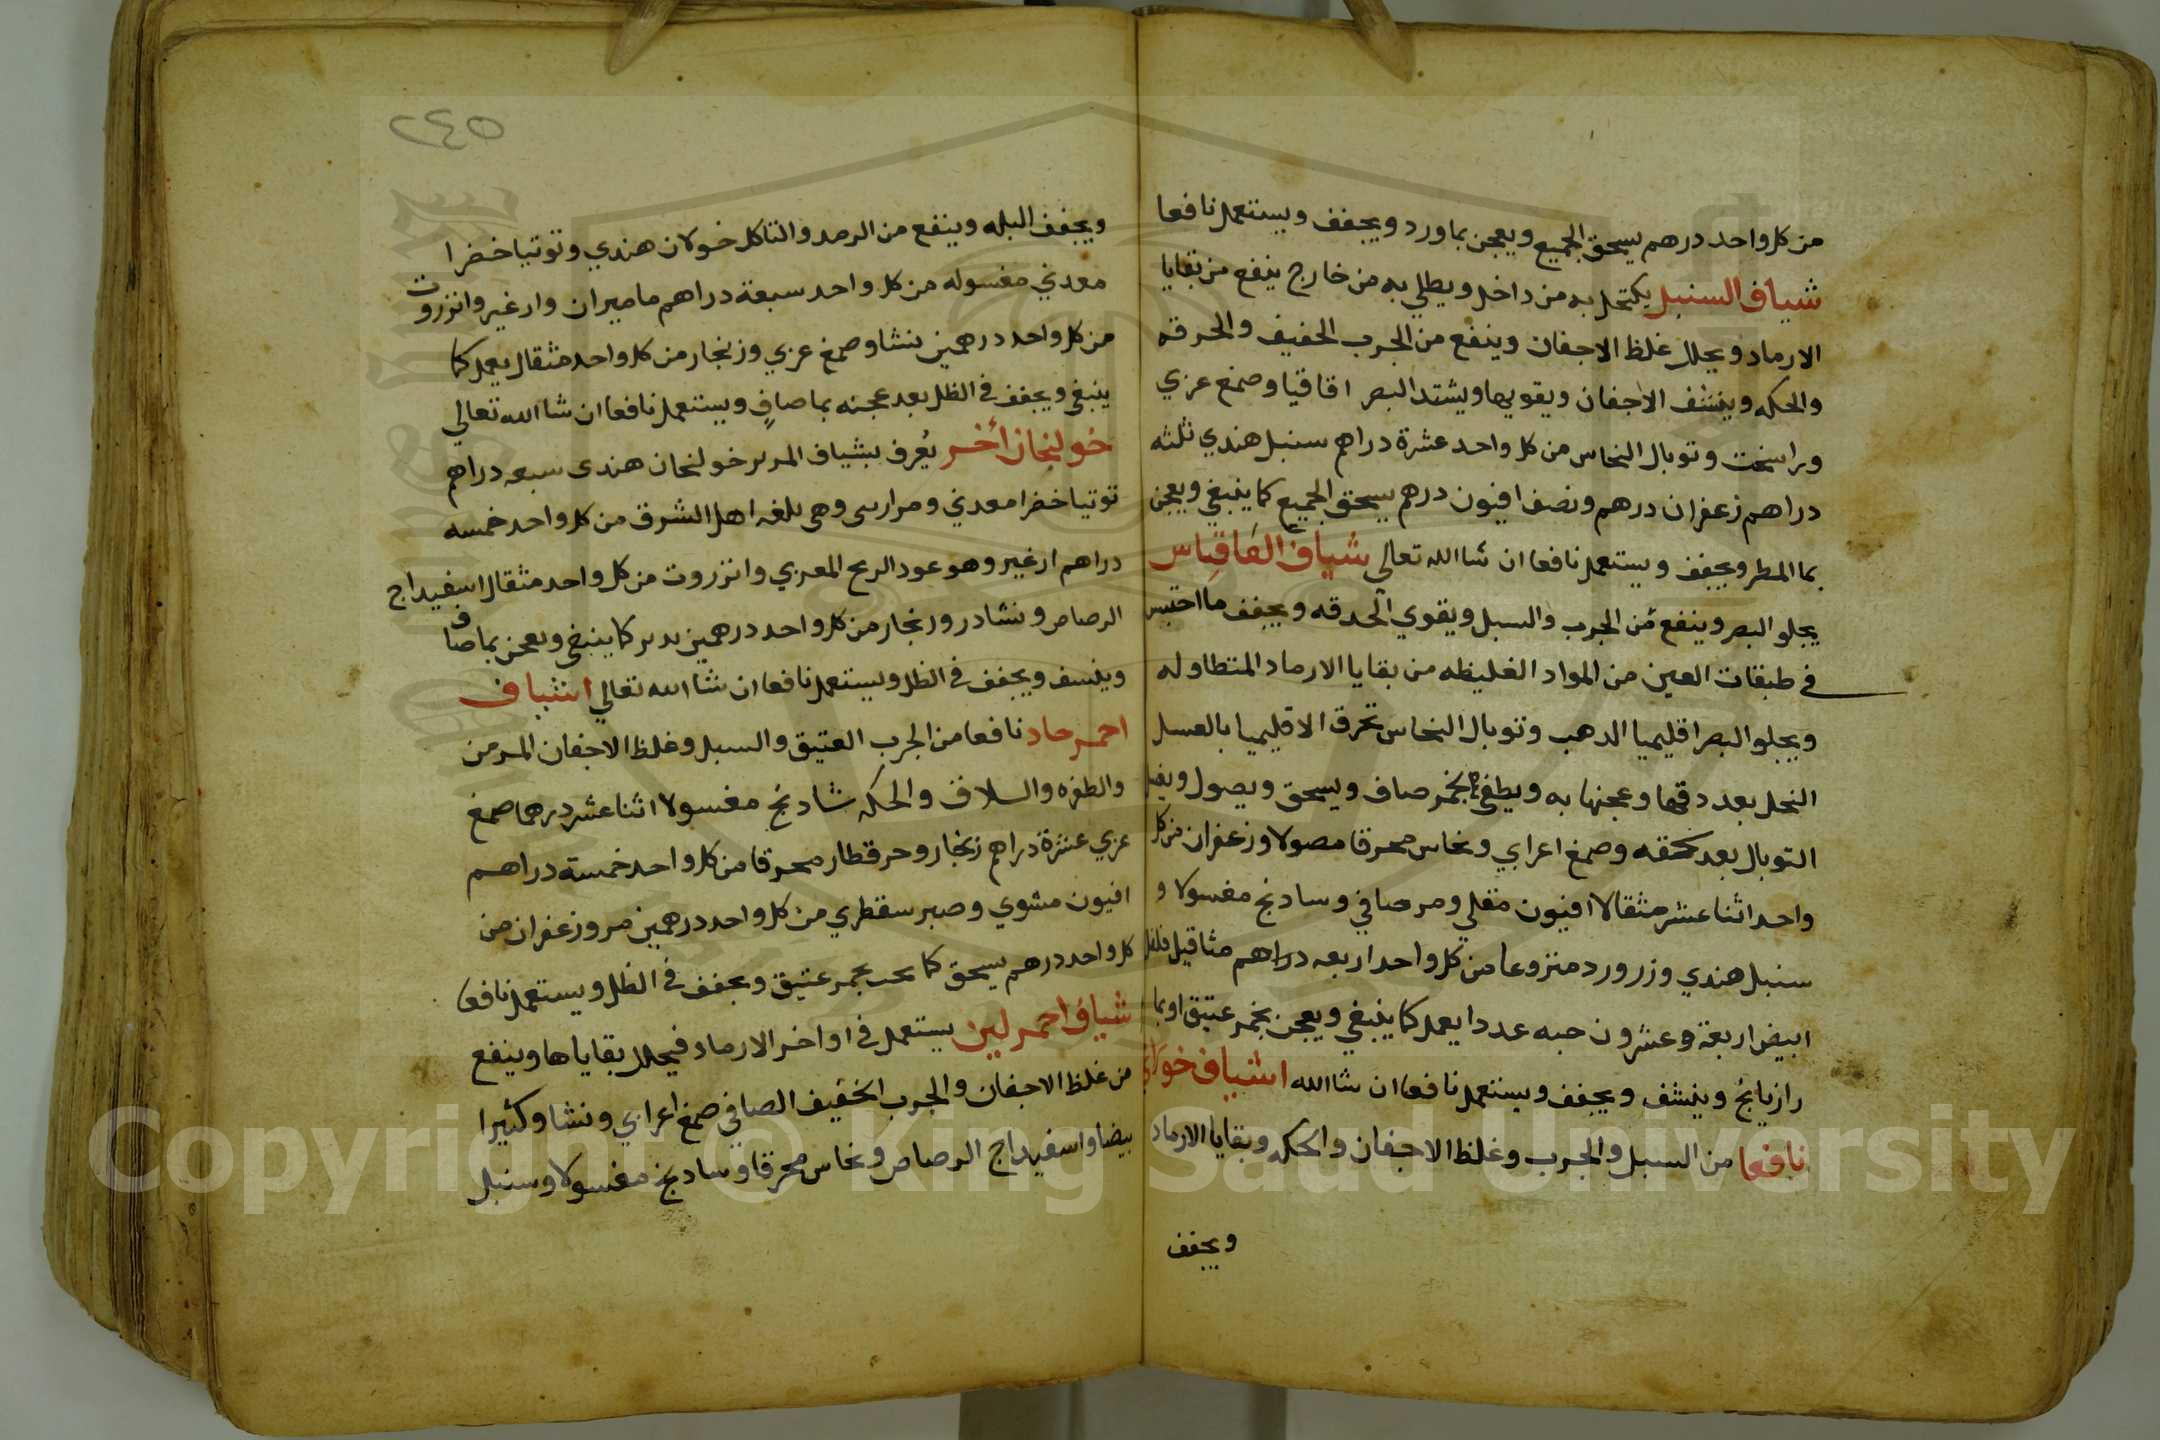 من كل واحد درهم يسحق الجميع ويعجن بماورد ويجفف ويستعمل نافعا
شياف السنبل يكتحل به من داخل ويطلي به من خارج ينفع من بقايا
الارماد ويحلل غلظ الاجفان وينفع من الجرب الخفيف والحرقه
والحكه وينشف الاجفان ويقويها ويشتد البصر اقاقيا وصمغ عربي
وراسخت وتوبال النحاس من كل واحد عشرة دراهم سنبل هندي ثلثه
دراهم زعفران درهم ونصف افيون درهم يسحق الجميع كما ينبغي ويعجن
بما المطر ويجفف ويستعمل نافعا ان شا الله تعالي شياف الفاقياس
يجلو البصر وينفع من الجرب والسبل ويقوي الحدقه ويجفف ما احتبس
في طبقات العين من المواد الغليظه من بقايا الارماد المتطاوله
ويجلو البصر اقليميا الدهب وتوبال النحاس تحرق الاقليميا بالعسل
النحل بعد دقها وعجنها به ويطفي بخمر صاف ويسحق ويصول
التوبال بعد سحقه وصمغ اعرابي ونحاس محرقا مصولا وزعفران من كل
واحد اثنا عشر مثقالا افيون مقلي ومر صافي وسادنج مغسولا و
سنبل هندي وزر ورد منزوعا من كل واحد اربعه دراهم مثاقيل فلفل
ابيض اربعة وعشرون حبه عددا يعمل كما ينبغي ويعجن بخمر عتيق او بما
رازيانج وينشف ويجفف ويستعمل نافعا ان شا الله اشياف
نافعا من السبل والجرب وغلظ الاجفان والحكه وبقايا الارماد
ويجفف
٢٤٥
ويجفف البله وينفع من الرمد والتاكل خولان هندي وتوتيا خضرا
معدني مغسوله من كل واحد سبعة دراهم ماميران وارغير وانزروت
من كل واحد درهمين نشا وصمغ عربي وزنجار من كل واحد مثقال يعمل كما
ينبغي ويجفف في الظل بعد عجنه بما صافٍ ويستعمل نافعا ان شا الله تعالي
خولنجان أخر يُعرف بشياف خولنجان هندى سبعه دراهم
توتيا خضرا معدني وهى بلغه اهل الشرق من كل واحد خمسه
دراهم ارغير وهو عود الريح المغربي وانزروت من كل واحد مثقال اسفيداج
الرصاص ونشادر وزنجار من كل واحد درهمين يدبر كما ينبغي ويعجن بما صاف
وينشف ويجفف في الظل ويستعمل نافعا ان شا الله تعالي اشياف
احمر حاد نافعا من الجرب العتيق والسبل وغلظ الاجفان المزمن
والطفره والسلاق والحكه شادنج مغسولا اثنا عشر درهما صمغ
عربي عشرة دراهم زنجار وحرقطار محرقا من كل واحد خمسة دراهم
افيون مشوي وصبر سقطري من كل واحد درهمين مر وزعفران من
كل واحد درهم يسحق كما يجب بخمر عتيق ويجفف في الظل ويستعمل نافعا
شياف احمر لين يستعمل في اواخر الارماد فيحلل بقاياها وينفع
من غلظ الاجفان والجرب الخفيف الصافي صمغ اعرابي ونشا وكثيرا
بيضا واسفيداج الرصاص ونحاس محرقا وسادنج مغسولا وسنبل
Copyright © King Saud University